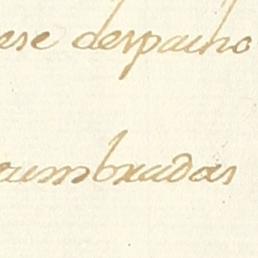 ese despacho
cumbradas